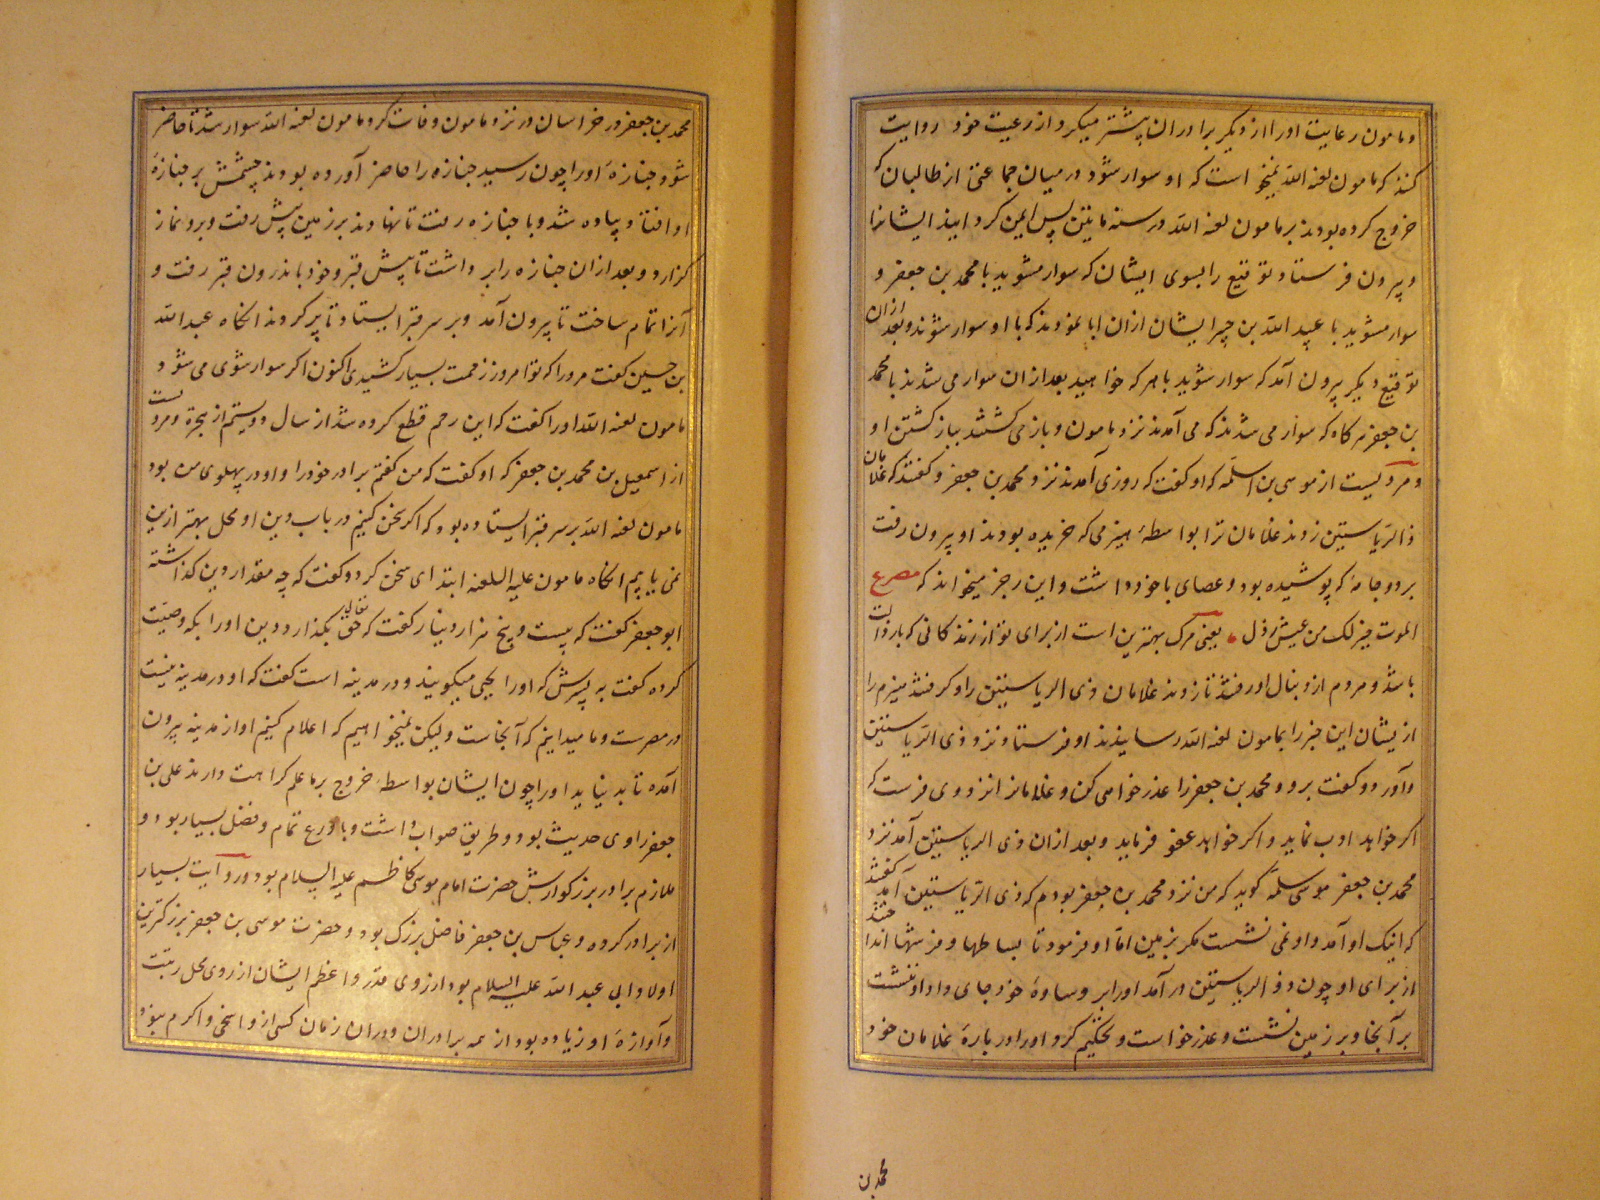 و مامون رعایت او را از دیگر برادران پیشتر میکرد از رعیت خود روایت
کنند که مامون لعنه الله نمیخواست که او سوار شود در میان جماعتی از طالبان که
خروج کرده بودند بر مامون لعنه الله در سنه مأتین پس ایمن گردانید ایشانرا
و بیرون فرستاد توقیع را بسوی ایشان که سوار مشوید با محمد بن جعفر و
سوار مشوید با عبید الله بن حسین ایشان ازان ابا نمودند که با او سوار شوند و بعد ازان
توقیع دیگر بیرون آمد که سوار شوید با هر که خواهید بعد ازان سوار می شدند با محمد
بن جعفر هرگاه که سوار می شدند که می آمدند نزد مامون و باز می گشتند بباز گشتن او
و مرویست از موسی بن سلمه که او گفت که روزی آمدند نزد محمد بن جعفر و گفتند که غلامان
ذالریاستین زدند غلامان ترا بواسطۀ هیزمی که خریده بودند او بیرون رفت
بر دو جامۀ که پوشیده بود و عصای با خود داشت و این رجز میخواند که مصرع
الموت خیر لک من عیش بذل یعنی مرک بهترین است از برای تو از زندکانی که با رذالت
باشد و مردم از دنبال او رفتند تا زدند غلامان ذی الریاستین را و کرفتند هیزم را
ازیشان این خبر را بمامون لعنه الله رسانیدند او فرستاد نزد ذی الریاستین
و آورد و گفت برو و محمد بن جعفر را عذر خواهی کن و غلامانرا نزد وی فرست که
اگر خواهد ادب نماید و اگر خواهد عفو فرماید و بعد ازان ذی الریاستین آمد نزد
محمد بن جعفر موسی سلمه گوید که من نزد محمد بن جعفر بودم که ذی الریاستین آمد گفتند
که اینک او آمد و او نمی نشست مگر بزمین اما او فرمود تا بساطها و فرشها انداختند
از برای او چون ذو الریاستین در آمد او را بر وسادۀ خود جای داد او ننشست
بر آنجا و بر زمین نشست و عذر خواست و تحکیم کرد او را در بارۀ غلامان خود
محمد بن
محمد بن جعفر در خراسان در نزد مامون وفات کرد مامون لعنه الله سوار شد تا حاضر
شود جنازۀ او را چون رسید جنازه را حاضر آورده بودند چشمش بر جنازۀ
او افتاد پیاده شد و با جنازه رفت تا نهادند بر زمین پیش رفت و برو نماز
گزارد و بعد ازان جنازه را برداشت تا پیش قبر و خود باندرون قبر رفت و
آنرا تمام ساخت تا بیرون آمد و بر سر قبر ایستاد تا پر کردند آنکاه عبد الله
بن حسین گفت مر او را که تو امروز زحمت بسیار کشیدی اکنون اگر سوار شوی می شود
مامون لعنه الله او را گفت که این رحم قطع کرده شد از سال دویستم از هجرة و مرویست
از اسمعیل بن محمد بن جعفر که او گفت که من گفتم برادر خود را و او در پهلوی من بود
مامون لعنه الله بر سر قبر ایستاده بود که اگر سخن کنیم در باب دین او محل بهتر ازین
نمی یابیم آنکاه مامون علیه اللعنه ابتدای سخن کرد و گفت که چه مقدار دین گذاشته
ابو جعفر گفت که بیست و پنج هزار دینار گفت که حق تعالی بگذارد دین او را بکه وصیت
کرده گفت به پسرش که او را یحیی میگویند و در مدینه است گفت که او در مدینه نیست
در مصرست و ما میدانیم که آنجاست و لیکن نمیخواهیم که اعلام کنیم او از مدینه بیرون
آمده تا بد نیاید او را چون ایشان بواسطۀ خروج بر ما علم کراهت دارند علی بن
جعفر راوی حدیث بود و طریق صواب داشت و با ورع تمام و فضل بسیار بود و
ملازم برادر بزرگوارش حضرت امام موسی کاظم علیه السلام بود و روایت بسیار
از برادر کرده و عباس بن جعفر فاضل بزرگ بود و حضرت موسی بن جعفر بزرگترین
اولاد ابی عبد الله علیه السلام بود از روی قدر و اعظم ایشان از روی محل رتبت
و آوازۀ او زیاده بود از همه برادران و دران زمان کسی ازو اسخی و اکرم نبود